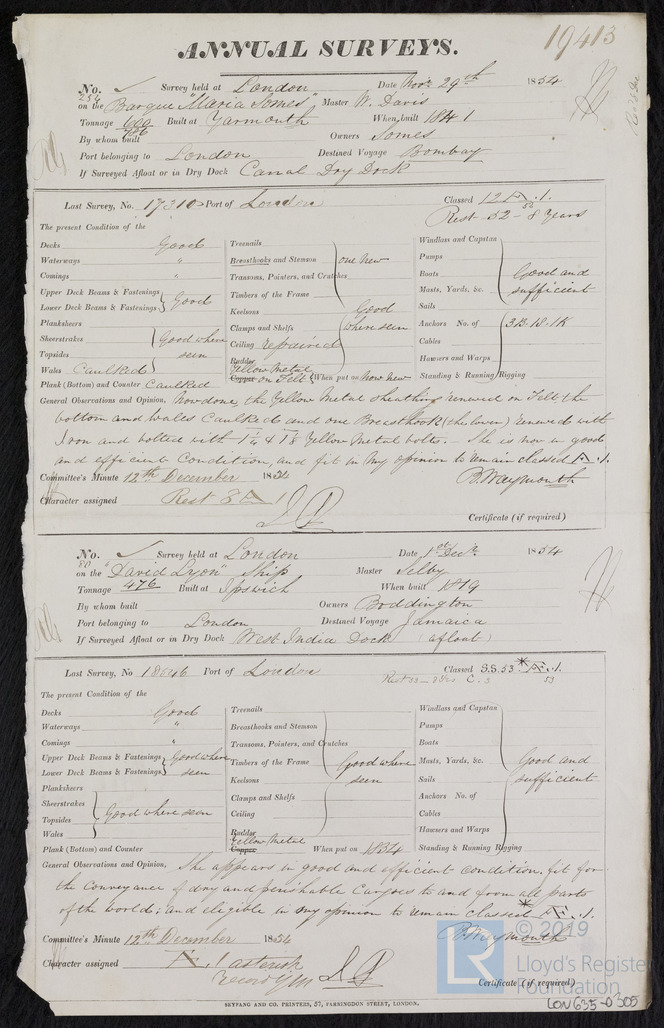 ANNUAL SURVEYS.
19413
No. 256 Survey held at London Date Novr 29th 1854
on the Barque "Maria Somes" Master W. Davis
Tonnage 600 786 Built at Yarmouth When built 1841
By whom built Owners Somes
Port belonging to London Destined Voyage Bombay
If Surveyed Afloat or in Dry Dock Canal Dry Dock
Last Survey, No. 17310 Port of London Classed 12 A.1.
Rest 52-8 Years
The present Condition of the
Decks Good Treenails Windlass and Capstan
Waterways " Breasthooks and Stemson one New Pumps
Comings " Transoms, Pointers, and Crutches Boats Good and
Upper Deck Beams & Fastenings Good Timbers of the Frame Masts, Yards, &c. sufficient
Lower Deck Beams & Fastenings Keelsons Good Sails
Planksheers Clamps and Shelfs where seen Anchors No. of 3B.1S.1K
Sheerstrakes Good where Ceiling repaired Cables
Topsides seen Rudder Hawsers and Warps
Wales Caulked Yellow Metal Copper on Felt When put on Now New Standing & Running Rigging
Plank (Bottom) and Counter Caulked
General Observations and Opinion, Now done, the Yellow Metal sheathing renewed on Felt the
bottom and Wales Caulked and one Breasthook (the lower) renewed with
Iron and bolted with 1 1/4 & 1 1/8 Yellow Metal bolts. - She is now in good
and efficient Condition, and fit in My opinion to remain classed A.1.
Committee's Minute 12th December 1854 B. Waymouth
Character assigned Rest 8 A 1
Certificate (if required)
No. 80 Survey held at London Date 1st Decr. 1854
on the "David Lyon" Ship Master Selby
Tonnage 476 Built at Ipswich When built 1819
By whom built Owners Boddington
Port belonging to London Destined Voyage Jamaica
If Surveyed Afloat or in Dry Dock West India Dock (afloat)
Last Survey, No 18046 Port of London Classed S.S.53 * Æ.1.
53
The present Condition of the
Decks Good Treenails Windlass and Capstan
Waterways " Breasthooks and Stemson Pumps
Comings " Transoms, Pointers, and Crutches Boats
Upper Deck Beams & Fastenings Good where Timbers of the Frame Good where Masts, Yards, &c. Good and
Lower Deck Beams & Fastenings seen Keelsons seen Sails sufficient
Planksheers Clamps and Shelfs Anchors No. of
Sheerstrakes Good where seen Ceiling Cables
Topsides Rudder Hawsers and Warps
Wales Yellow Metal Copper When put on 1854 Standing & Running Rigging
Plank (Bottom) and Counter
General Observations and Opinion, She appears in good and efficient condition. fit for
the Conveyance of dry and perishable Cargoes to and from all parts
of the world; and eligible in my opinion to remain classed * Æ.1.
Committee's Minute 12th December 1854 B. Waymouth
Character assigned Æ.1 asterisk
Certificate (if required)
SEYFANG AND CO. PRINTERS, 57, FARRINGDON STREET, LONDON.
LON635-0305
© 2019
LR
Lloyd's Register
Foundation